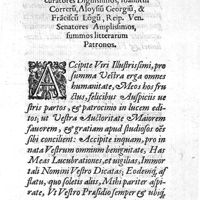 curatores Dignissimos, Ioannem
Correrū, Aloysiū Georgiū, &
Frāciscū Lōgū, Reip. Ven.
Senatores Amplissimos,
summos litterarum
Patronos.
ACcipite Viri Illustrissimi, pro
summa Vestra erga omnes
humanitate, Meos hos fru
ctus, felicibus Auspiciis ve
stris partos, et patrocinio in lucem edi-
tos; ut Vestra Auctoritate Maiorem
favorem, et gratiam apud studiosos oēs
sibi concilient: Accipite inquam, pro in
nata Vestrum omnium benignitate, Has
Meas Lucubrationes, et vigilias, Immor
tali Nomini Vestro Dicatas; Eodemq́; af
flatu, quo soletis aliis, Mihi pariter aspi-
rate, Vt Vestro Præsidio semper et ubiq́;